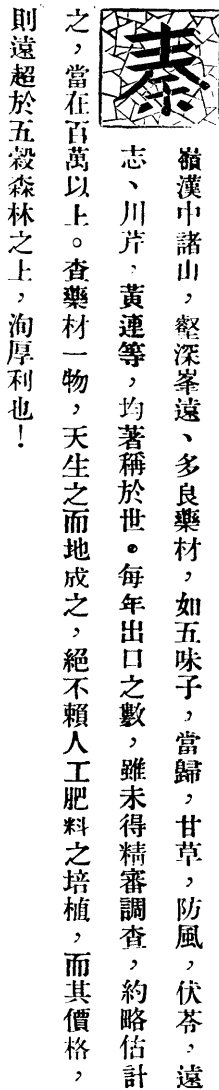 秦嶺漢中諸山，壑深峯遠、多良藥材，如五味子，當歸，甘草，防風，伏苓，遠
志、川芹，黃連等，均著稱於世。每年出口之數，雖未得精審調查，約略估計
之，當在百萬以上。查藥材一物，天生之而地成之，絕不賴人工肥料之培植，而其價格，
則遠超於五穀森林之上，洵厚利也！